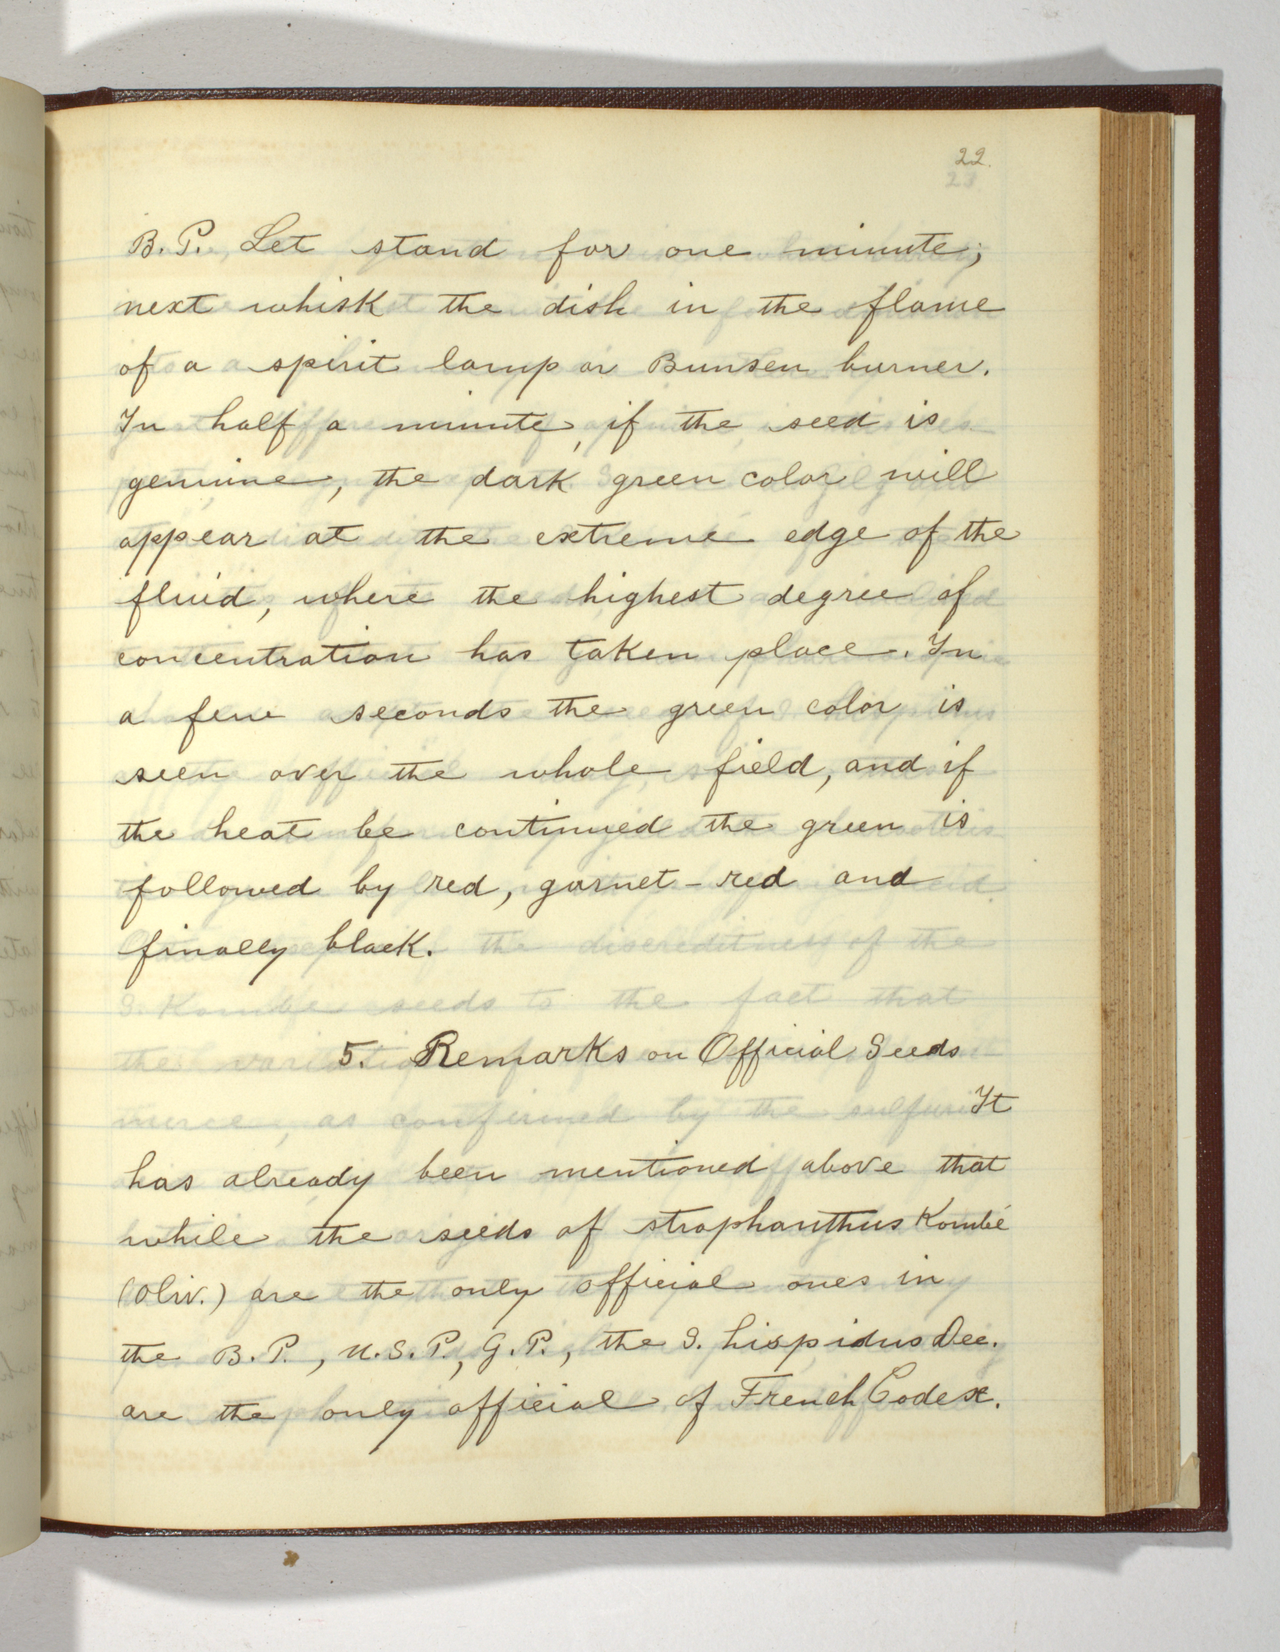 22.
B. P. Let stand for one minute;
next whisk the dish in the flame
of a spirit lamp or Bunsen burner.
In half a minute, if the seed is
genuine, the dark green color will
appear at the extreme edge of the
fluid, where the highest degree of
concentration has taken place. In
a few seconds the green color is
seen over the whole field, and if
the heat be continued the green is
followed by red, garnet-red and
finally black.
5. Remarks on Official Seeds
It
has already been mentioned above that
while the seeds of strophanthus Kombé
(Oliv.) are the only official ones in
the B. P., U. S. P., G. P., the S. hispidus Dec.
are the only official of French Codex.